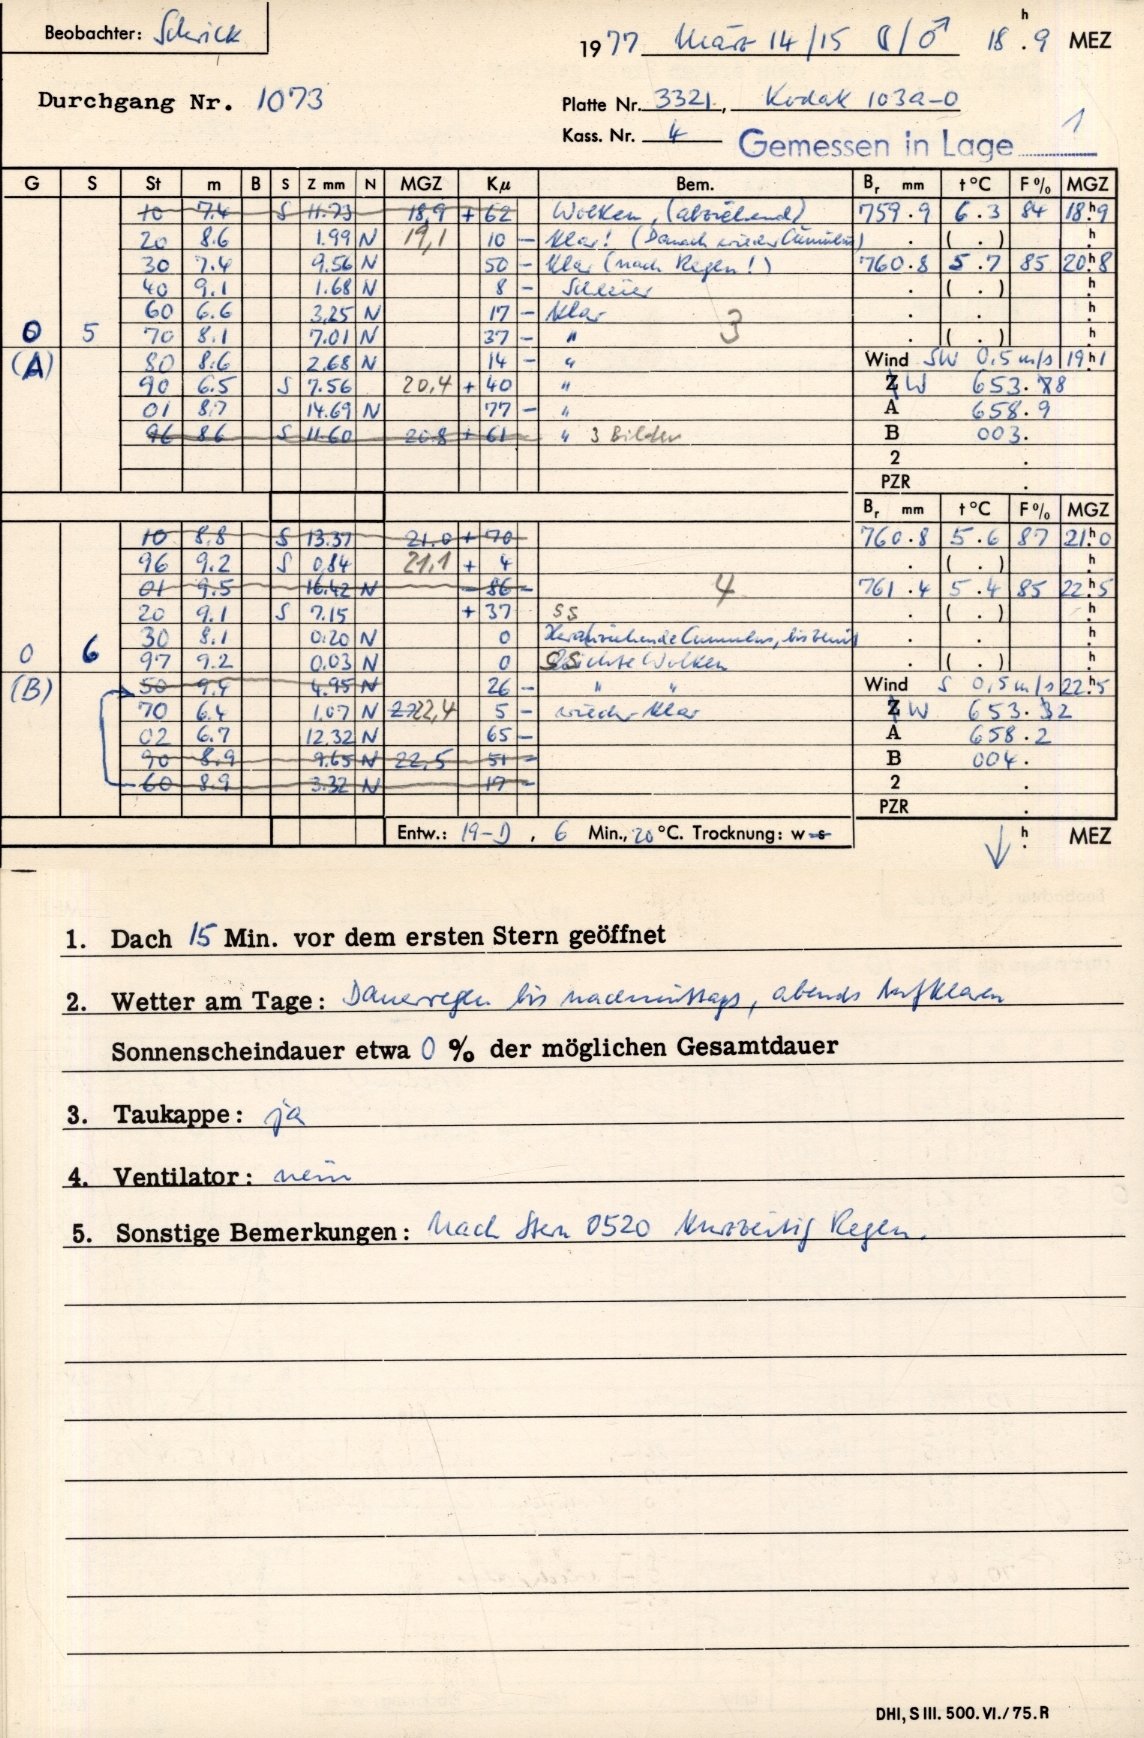 Beobachter: Schrick
1977 März 14/15 ☾/♂ 18h.9 MEZ
Durchgang Nr. 1073
Platte Nr. 3321, Kodak 103a-O
Kass. Nr. 4 Gemessen in Lage 1
G S St m B S Z mm N MGZ Kμ Bem. Br mm t°C F% MGZ
10 7.4 S 11.73 18,9 + 62 Wolken, (abziehend) 759.9 6.3 84 18h9
20 8.6 1.99 N 19,1 10 - klar! (Danach wieder Cumulus) . ( . ) h.
30 7.4 9.56 N 50 - klar (nach Regen!) 760.8 5.7 85 20h8
40 9.1 1.68 N 8 - Schleier . ( . ) h.
60 6.6 3,25 N 17 - klar . . h.
0 5 70 8.1 7.01 N 37 - " 3 . ( . ) h.
(A) 80 8.6 2.68 N 14 - " Wind SW 0,5 m/s 19h1
90 6.5 S 7.56 20,4 + 40 " Z W 653.88
01 8.7 14.69 N 77 - " A 658.9
96 8.6 S 11.60 20.8 + 61 " 3 Bilder B 003.
2 .
PZR .
Br mm t°C F% MGZ
10 8.8 S 13.37 21.0 + 70 760.8 5.6 87 21h0
96 9.2 S 0,84 21,1 + 4 . ( . ) h.
01 9.5 16.42 N 86 - 4 761.4 5.4 85 22h5
20 9.1 S 7.15 + 37 SS . ( . ) h.
30 8.1 0.20 N 0 Heranziehende Cumulus, bis Zenit . . h.
0 6 97 9.2 0.03 N 0 SS dichte Wolken . ( . ) h.
(B) 50 9.4 4.95 N 26 - " " Wind S 0,5 m/s 22h5
70 6.4 1.07 N 22,4 5 - wieder klar Z W 653.32
02 6.7 12.32 N 65 - A 658.2
90 8.9 9.65 N 22,5 51 - B 004.
60 8.9 3.32 N 17 - 2 .
PZR .
Entw.: 19-D, 6 Min., 20 °C. Trocknung: w - s h. MEZ
1. Dach 15 Min. vor dem ersten Stern geöffnet
2. Wetter am Tage: Dauerregen bis nachmittags, abends Aufklaren
Sonnenscheindauer etwa 0 % der möglichen Gesamtdauer
3. Taukappe: ja
4. Ventilator: nein
5. Sonstige Bemerkungen: Nach Stern 0520 kurzzeitig Regen.
DHI, S III. 500. VI./75. R